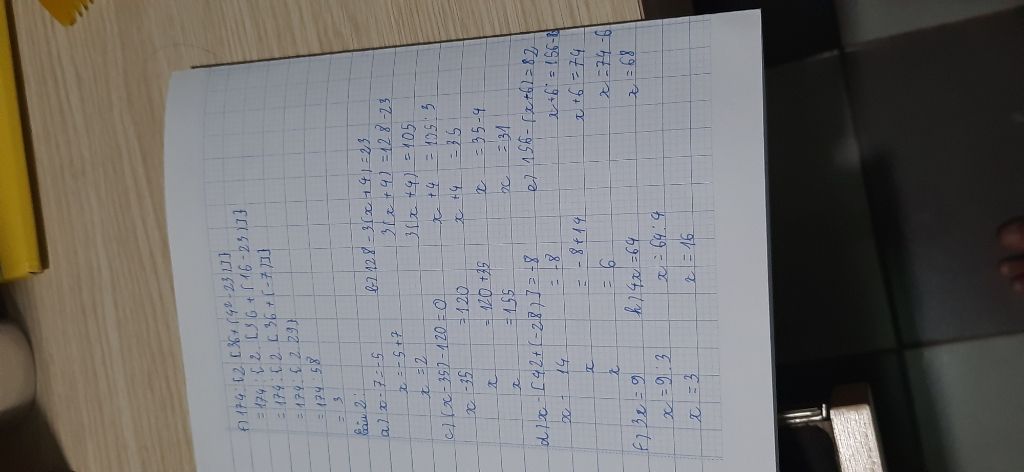 f) 174 : {2 [36 + (4² - 23)]}
= 174 : {2 [36 + (16 - 23)]}
= 174 : {2 [36 + (-7)]}
= 174 : {2 29}
= 174 : 58
= 3
Bài 2:
a) x - 7 = -5
x = -5 + 7
x = 2
b) 128 - 3(x + 4) = 23
3(x + 4) = 128 - 23
3(x + 4) = 105
x + 4 = 105 : 3
x + 4 = 35
x = 35 - 4
x = 31
c) (x - 35) - 120 = 0
x - 35 = 120
x = 120 + 35
x = 155
d) x - [42 + (-28)] = -8
x - 14 = -8
x = -8 + 14
x = 6
e) 156 - (x + 6) = 82
x + 6 = 156 - 8
x + 6 = 74
x = 74 - 6
x = 68
f) 3x = 9
x = 9 : 3
x = 3
h) 4x = 64
x = 64 : 4
x = 16